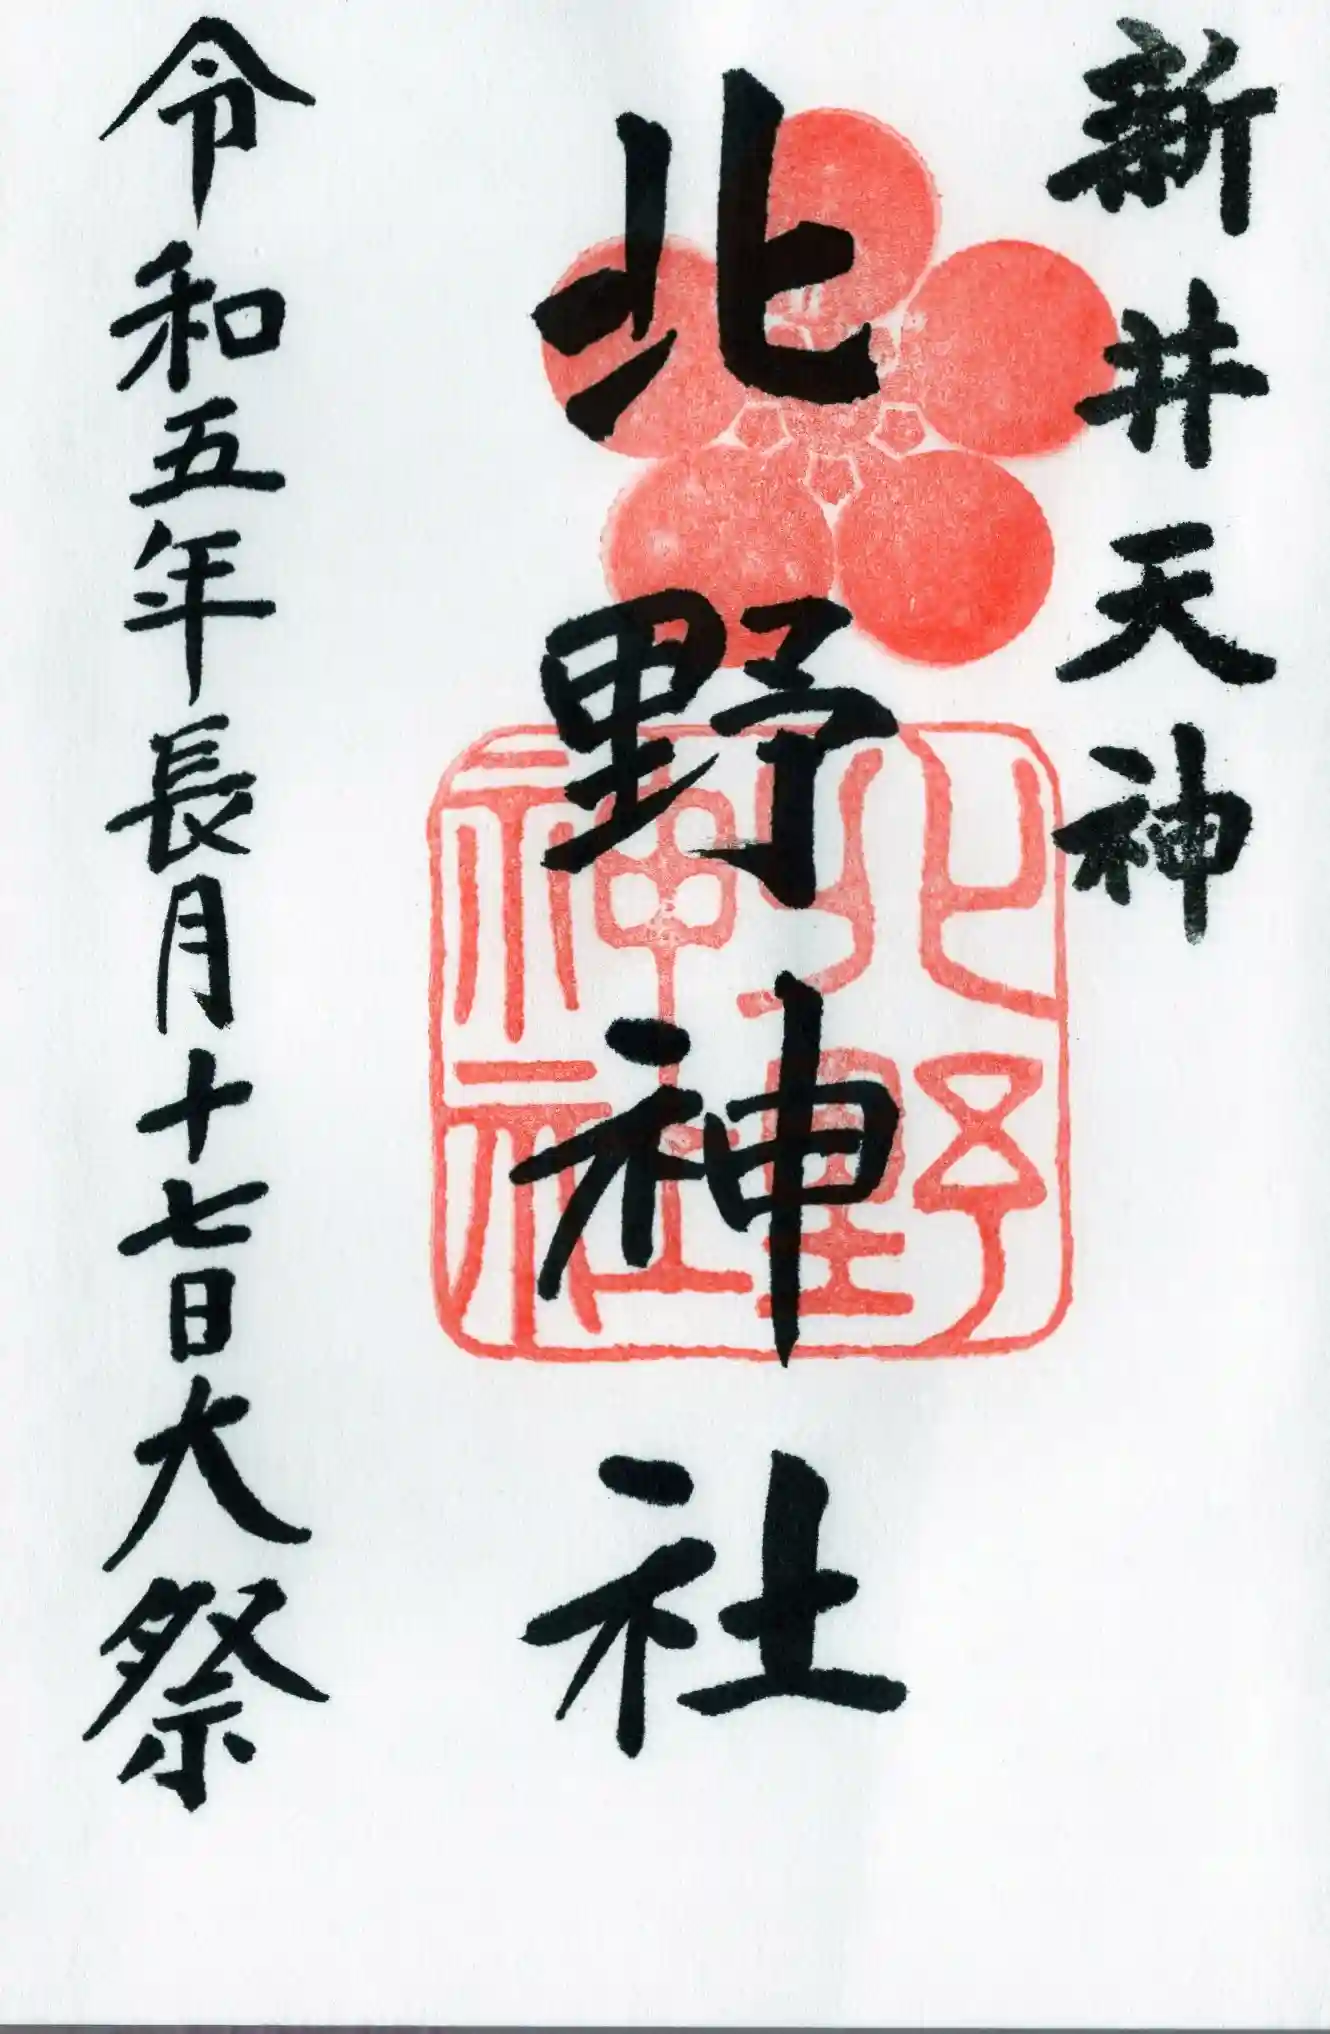 新井天神
北野神社
北野
神社
令和五年長月十七日大祭